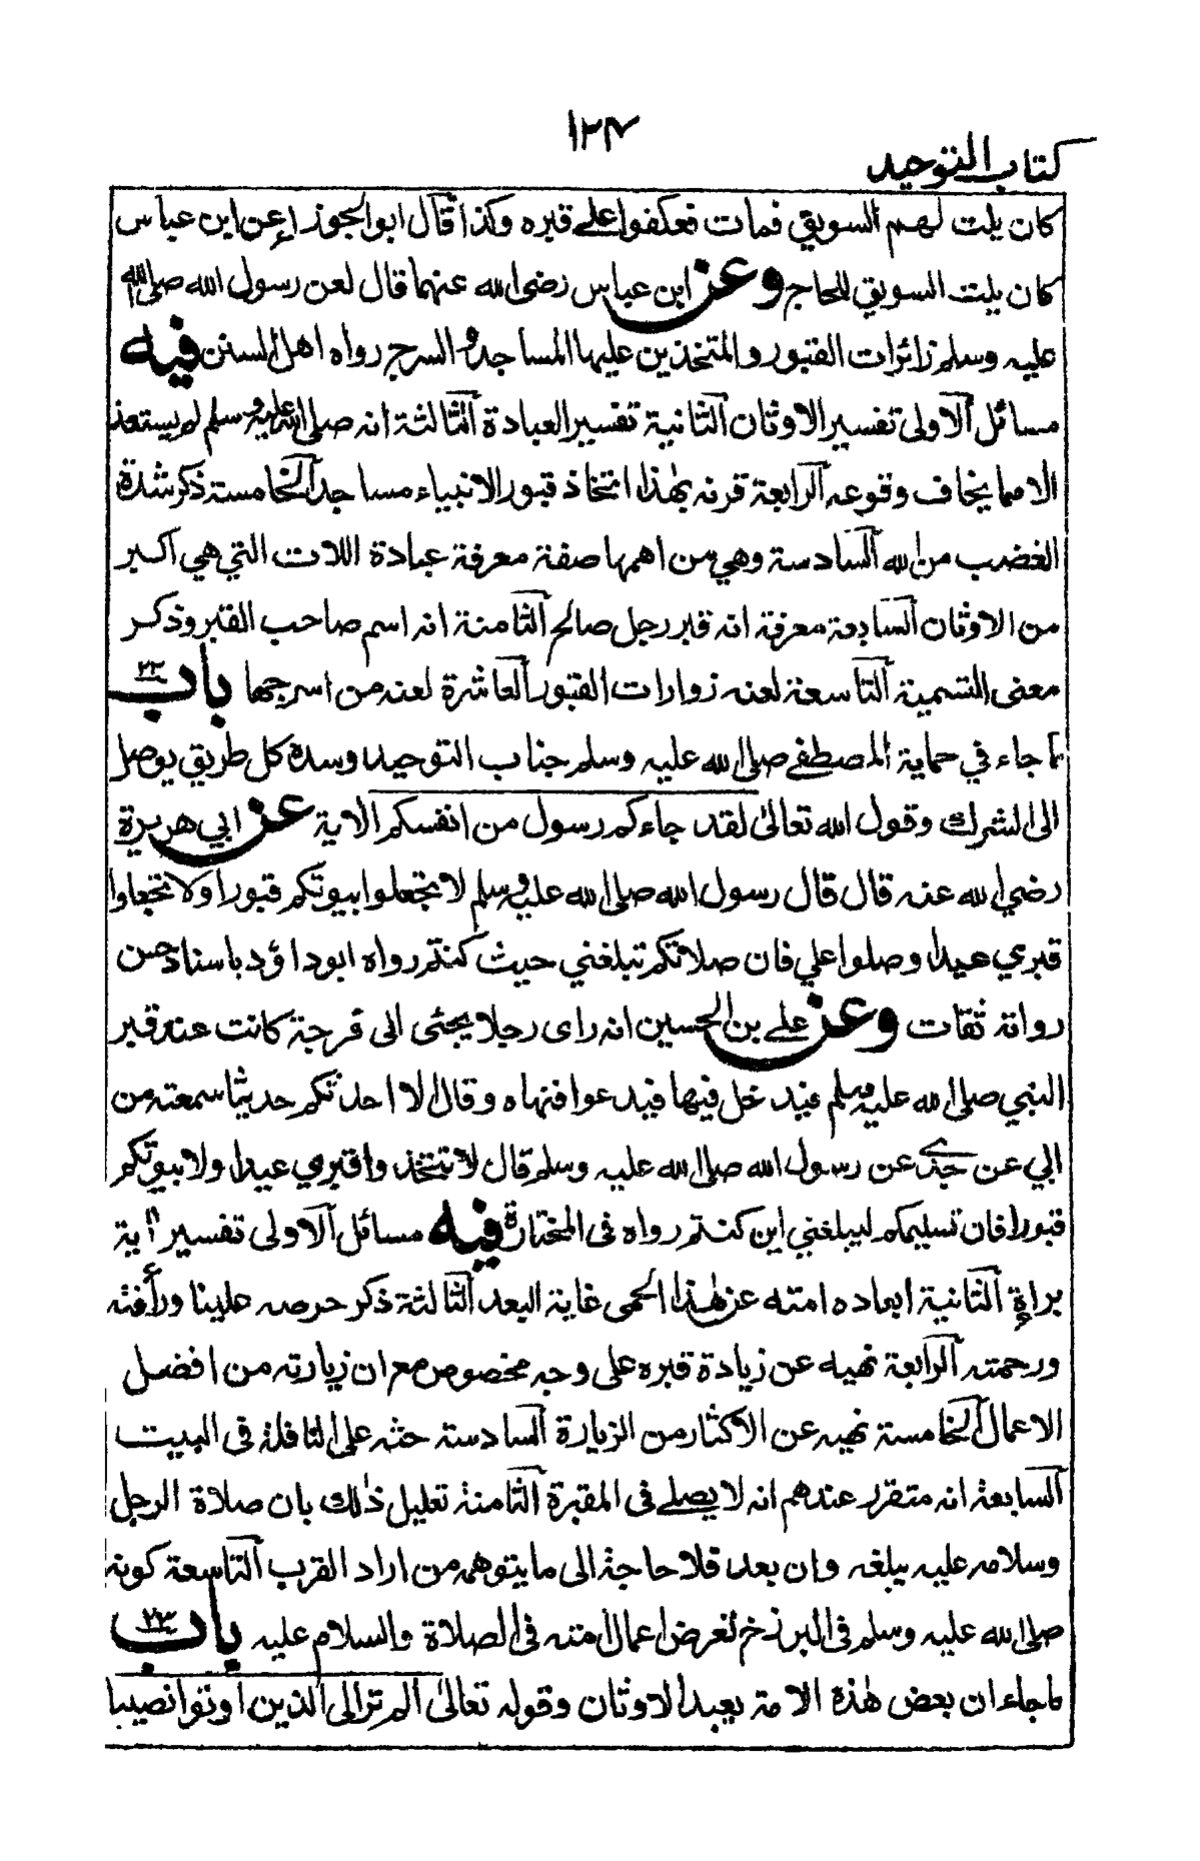 ١٢٤
كتاب التوحيد
كان يلت لهم السويق فمات فعكفوا على قبره وكذا قال ابو الجوزاء عن ابن عباس
كان يلت السويق للحاج وعن ابن عباس رضى الله عنهما قال لعن رسول الله صلى الله
عليه وسلم زائرات القبور والمتخذين عليها المساجد والسرج رواه اهل السنن فيه
مسائل الاولى تفسير الاوثان الثانية تفسير العبادة الثالثة انه صلى الله عليه وسلم لم يستعذ
الا مما يخاف وقوعه الرابعة قرنه بهٰذا اتخاذ قبور الانبياء مساجد الخامسة ذكر شدة
الغضب من الله السادسة وهي من اهمها صفة معرفة عبادة اللات التي هي اكبر
من الاوثان السابعة معرفة انه قبر رجل صالح الثامنة انه اسم صاحب القبر وذكر
معنى التسمية التاسعة لعنه زوارات القبور العاشرة لعنه من اسرجها باب ٢٢
ما جاء في حماية المصطفے صلى الله عليه وسلم جناب التوحيد وسده كل طريق يوصل
الى الشرك وقول الله تعالىٰ لقد جاءكم رسول من انفسكم الاٰية عن ابي هريرة
رضي الله عنه قال قال رسول الله صلى الله عليه وسلم لا تجعلوا بيوتكم قبورا ولا تجعلوا
قبري عيدا وصلوا علي فان صلاتكم تبلغني حيث كنتم رواه ابو داؤد باسناد حسن
رواته ثقات وعن علے بن الحسين انه راى رجلا يجئى الى فرجة كانت عند قبر
النبي صلى الله عليه وسلم فيدخل فيها فيدعوا فنهاه وقال الا احدثكم حديثا سمعته من
ابي عن جدي عن رسول الله صلى الله عليه وسلم قال لا تتخذوا قبري عيدا ولا بيوتكم
قبورا فان تسليمكم ليبلغني اين كنتم رواه فى المختارة فيه مسائل الاولى تفسير اٰية
براءة الثانية ابعاده امته عن هٰذا الحمى غاية البعد الثالثة ذكر حرصه علينا ورأفته
ورحمته الرابعة نهيه عن زيارة قبره على وجه مخصوص مع ان زيارته من افضل
الاعمال الخامسة نهيه عن الاكثار من الزيارة السادسة حثه على النافلة فى البيت
السابعة انه متقرر عندهم انه لا يصلے فى المقبرة الثامنة تعليل ذٰلك بان صلاة الرجل
وسلامه عليه يبلغه وان بعد فلا حاجة الى ما يتوهمه من اراد القرب التاسعة كونه
صلى الله عليه وسلم فى البرزخ تعرض اعمال امته فى الصلاة والسلام عليه باب ٢٣
ما جاء ان بعض هٰذه الامة يعبد الاوثان وقوله تعالىٰ الم تر الى الذين اوتوا نصيبا